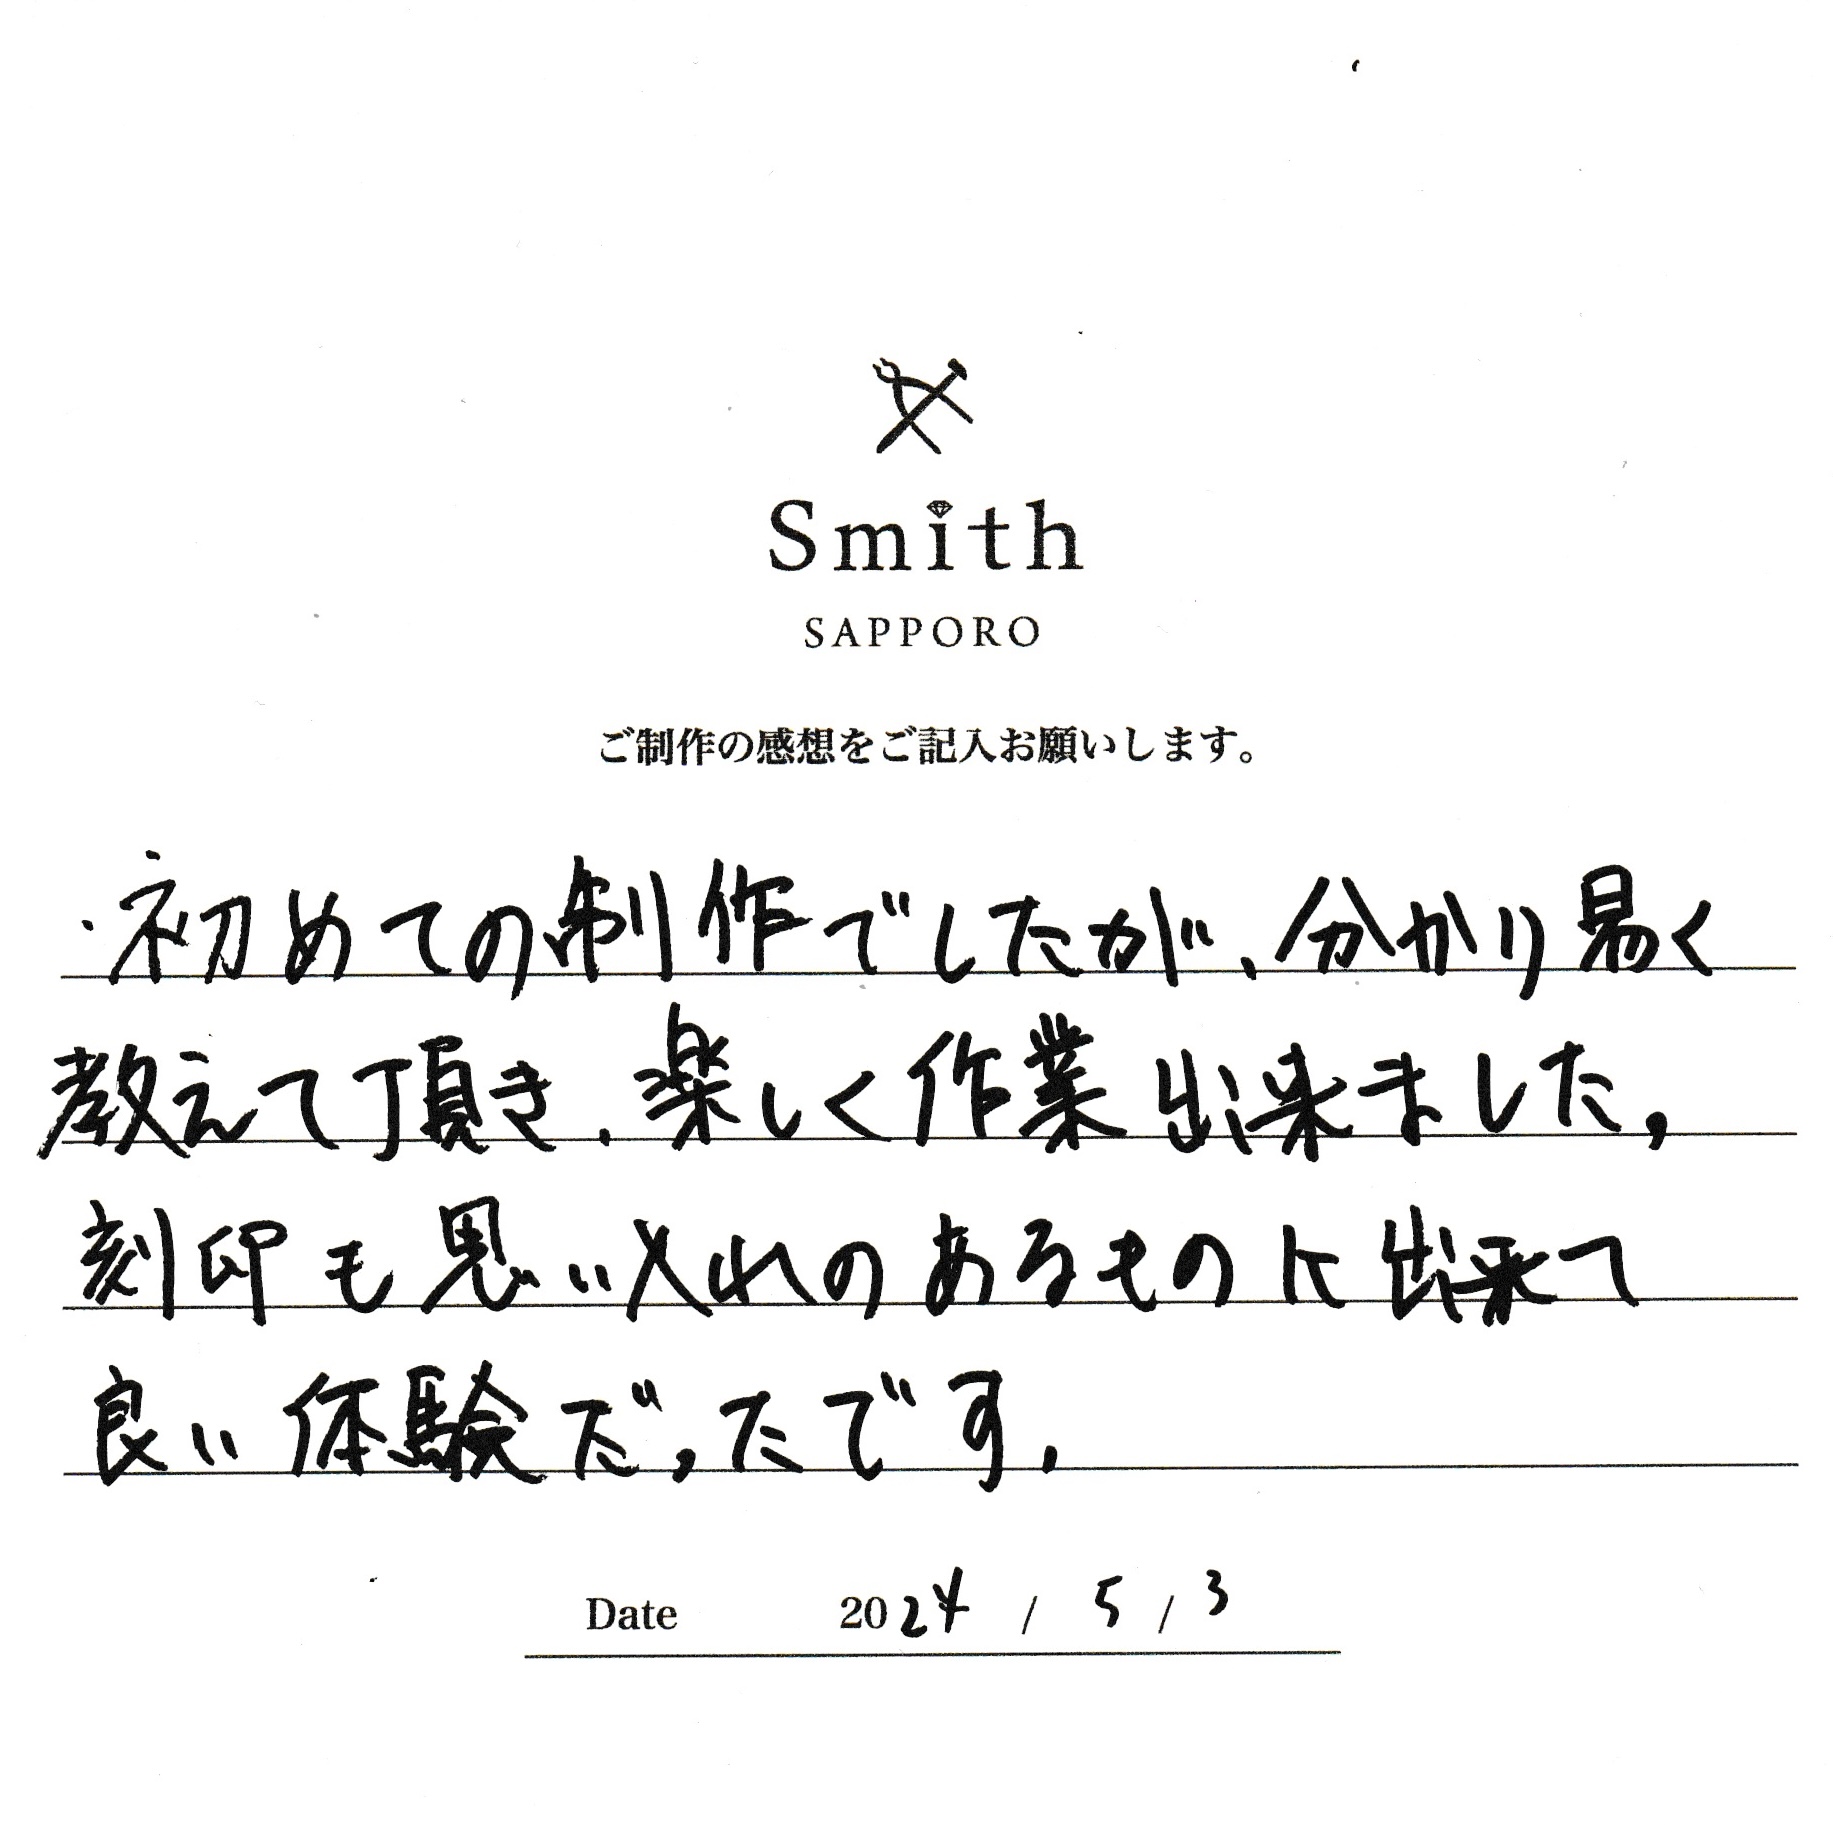 Smith
SAPPORO
ご制作の感想をご記入お願いします。
・初めての制作でしたが、分かり易く
教えて頂き、楽しく作業出来ました,
刻印も思い入れのあるものに出来て
良い体験だったです,
Date 2024 / 5 / 3